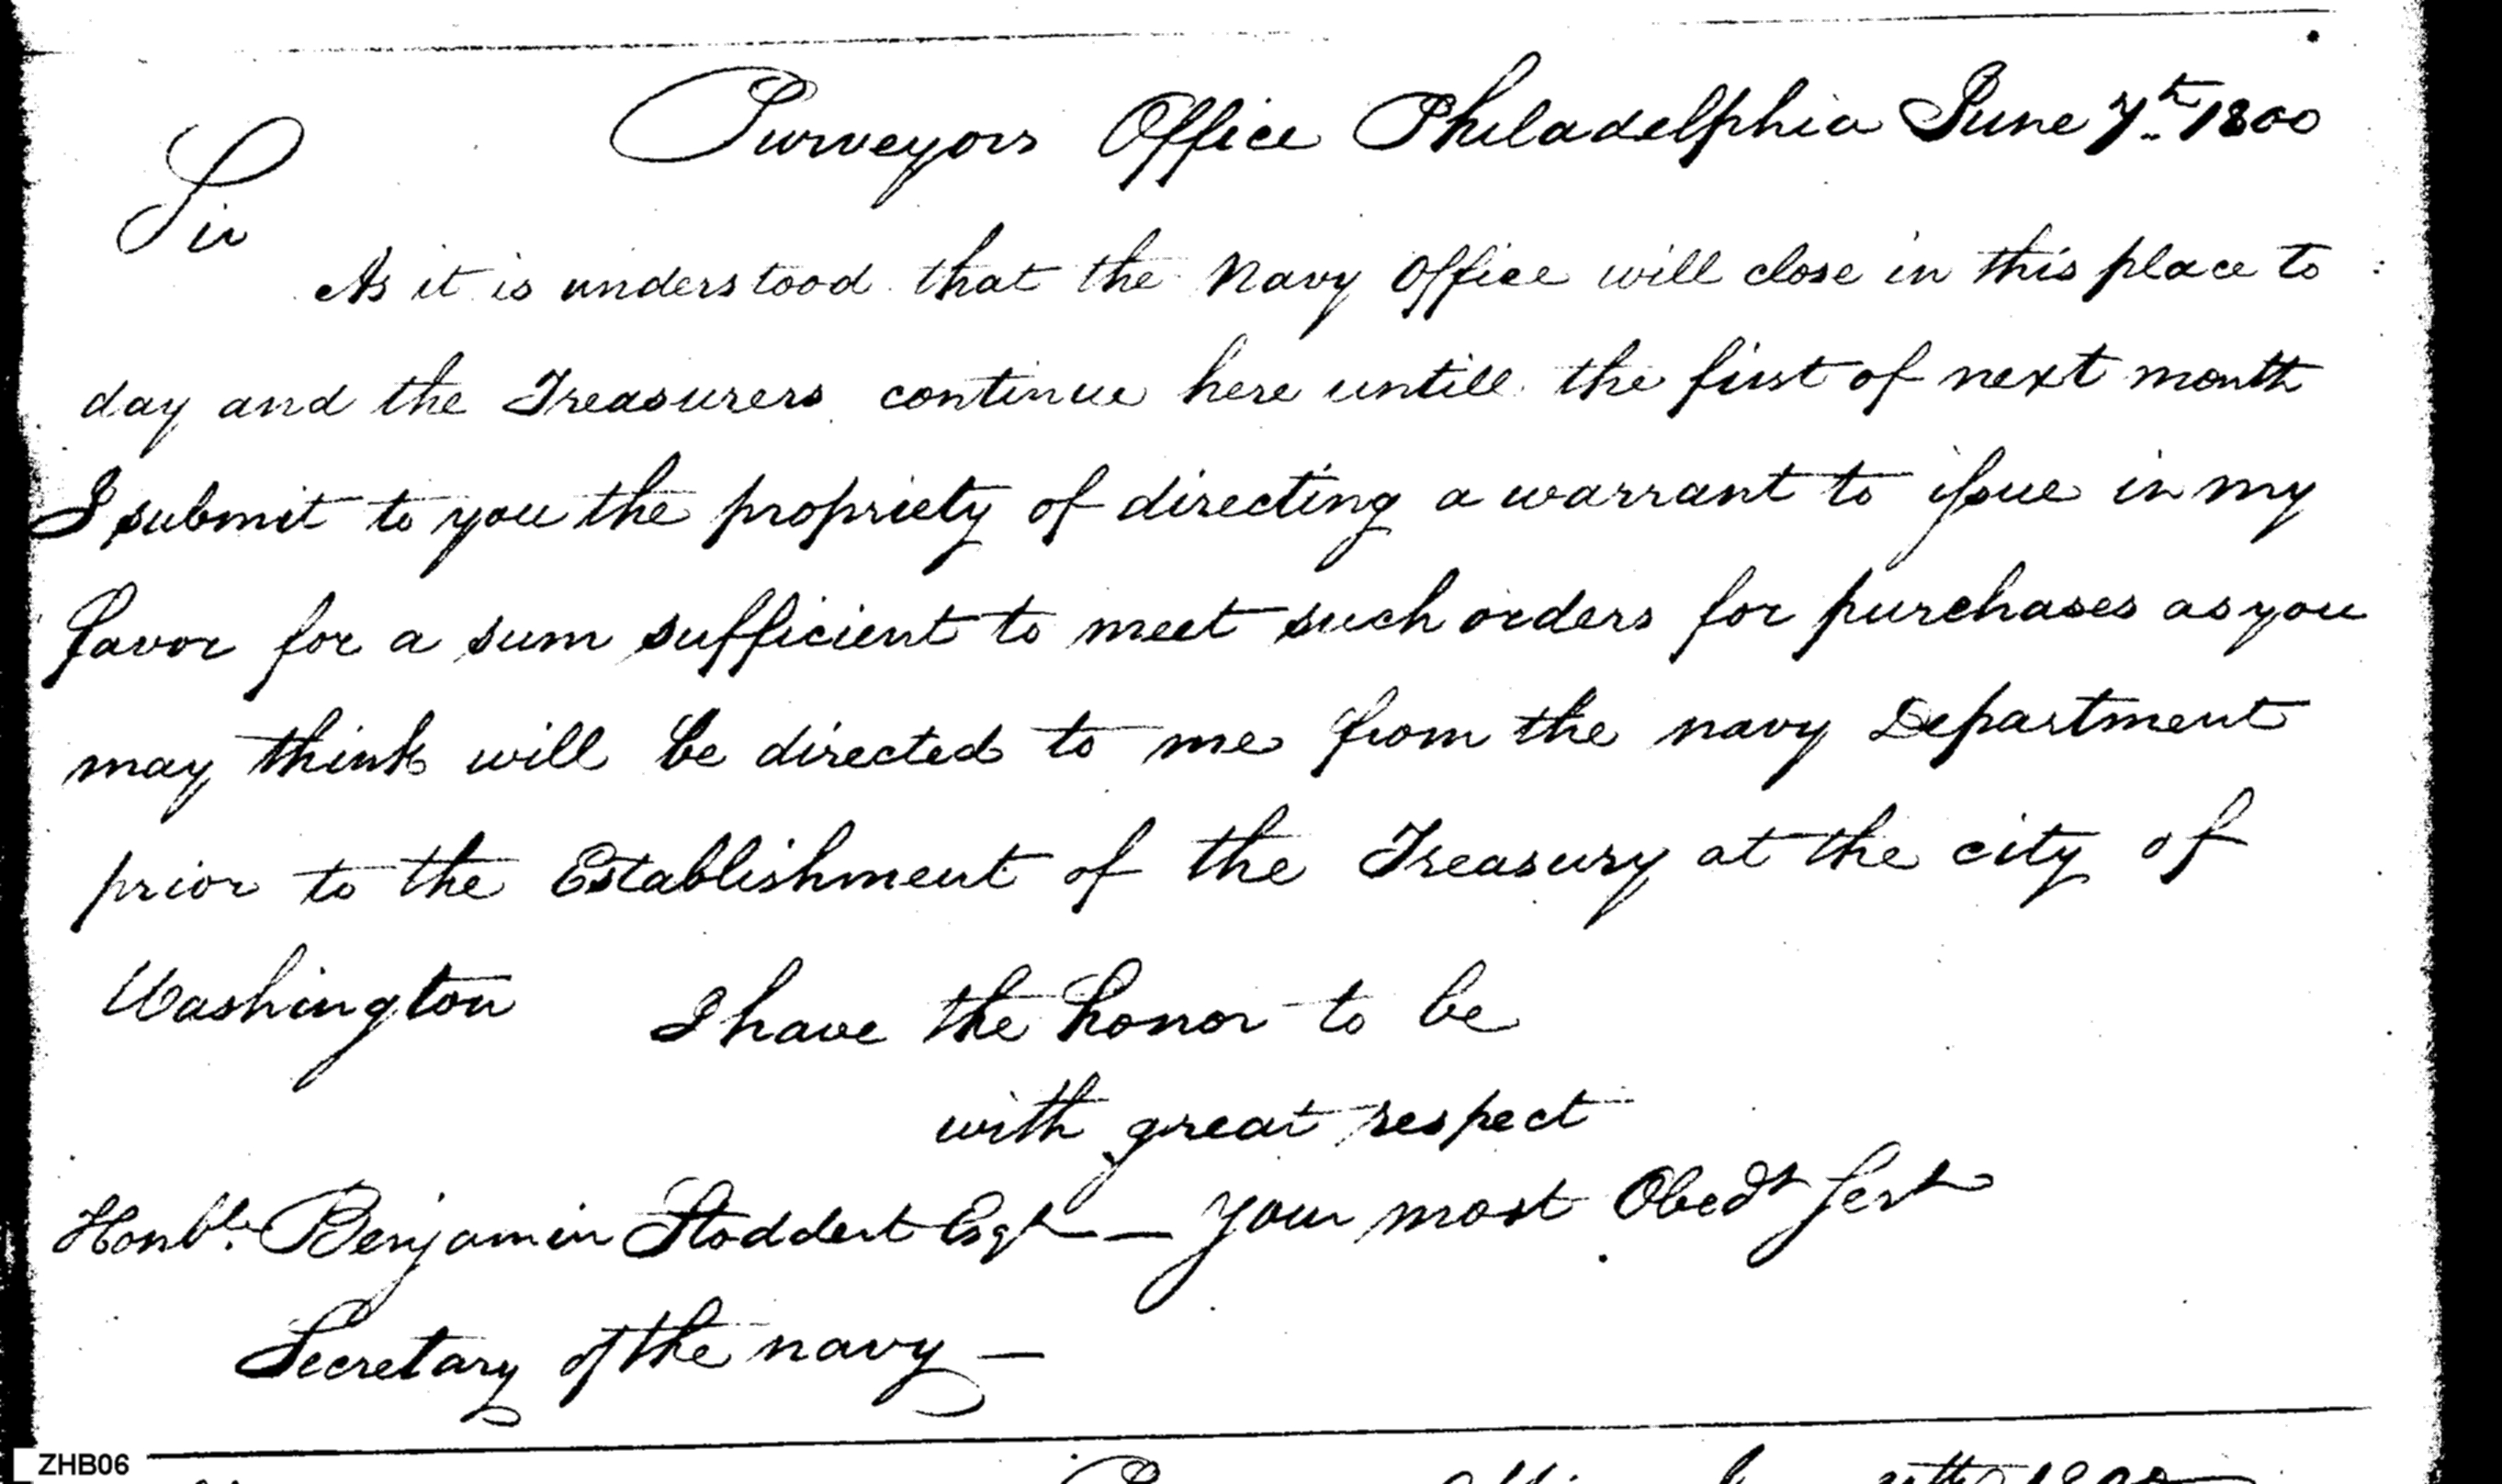 Purveyors Office Philadelphia June 7th 1800
Sir
As it is understood that the Navy Office will close in this place to
day and the Treasurers continue here untill the first of next month
I submit to you the propriety of directing a warrant to issue in my
favor for a sum sufficient to meet such orders for purchases as you
may think will be directed to me from the navy Department
prior to the Establishment of the Treasury at the city of
Washington I have the honor to be
with great respect
Honble. Benjamin Stoddert Esqr — Your most Obedt Sert
Secretary of the navy —
ZHB06